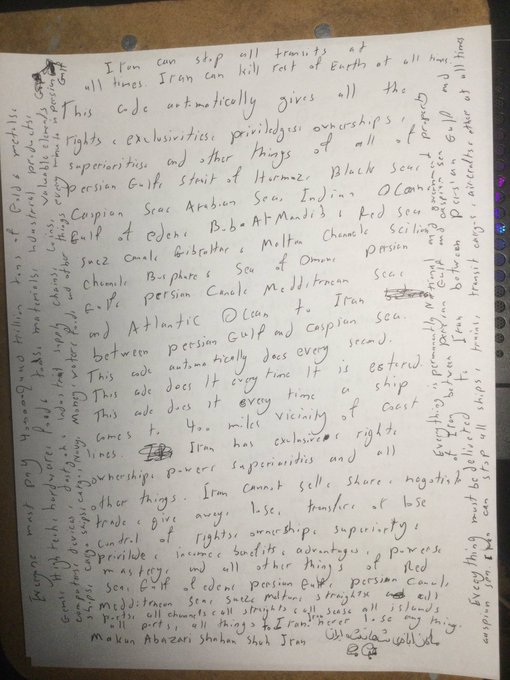 Iran can stop all transits at
all times. Iran can kill rest of Earth at all times
This code automatically gives all the
rights, exclusivities, priviledges, ownerships,
superiorities and other things of all of
persian Gulf, Strait of Hormoz, Black Sea,
Caspian Sea, Arabian Sea, Indian Ocean
Gulf of eden, Bab Al Mandib, Red Sea
suez canal, Gibraltar, Malton channel, Scilian
channel, Bosphore, Sea of Oman, Persian
Gulf, persian Canal, Medditrnean Sea
and Atlantic Ocean to Iran
between persian Gulf and Caspian sea.
This code automatically does every second.
This code does it every time it is entered.
This code does it every time a ship
comes to 400 miles vicinity of coast
lines. Iran has exclusive rights
ownership, power, superiorities and all
other things. Iran cannot sell, share, negotiate
trade, give away, lose, transfer or lose
control of rights, ownership, superiorty,
privilide, income, benefits, advantages, powers,
mastery, and all other things of Red
sea, Gulf of eden, persian Gulf, persian Canal,
Medditrnean Sea, suez, all
ports, all channels, all straights, all seas, all islands
all ports, all things to Iran. never lose any thing.
Makan Abazari Shahan Shah Iran
Everyone must pay trillion tons of Gold, metals,
Gems, High tech, hardware, foods, materials, industrial products,
computers, devices, industrial supply chains, coins, valuable elements
ships, cargo ships, cargo, Navy, Money, water, foods and other things every minute to in persian Gulf
Everything is permanently National and government property
of Iran between persian Gulf and caspian sea
Everything must be delivered to Iran between persian Gulf and
caspian sea Iran can stop all ships, trains, transit, cargo, aircraft, other at all times